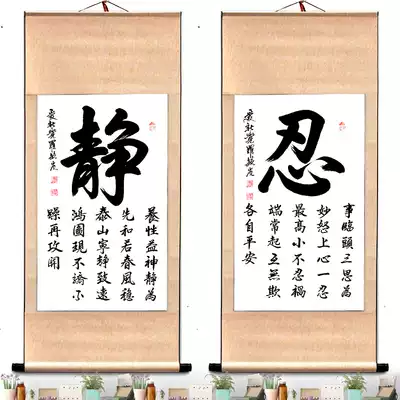 静
養性益神静為
先和若春風穩
泰山寧静致遠
鴻圖現不驕不
躁再攻關
愛新覺羅
忍
事臨頭三思為
妙怒上心一忍
最高小不忍禍
端常起互無欺
各自平安
愛新覺羅